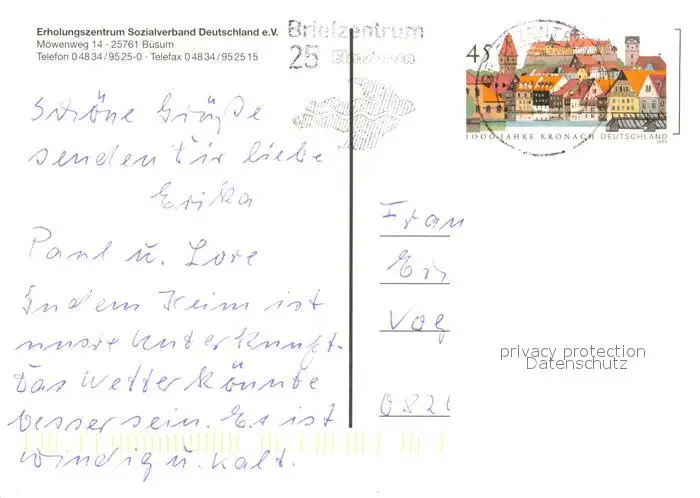 Erholungszentrum Sozialverband Deutschland e.V.
Möwenweg 14 - 25761 Büsum
Telefon 0 48 34 / 95 25-0 - Telefax 0 48 34 / 95 25 15
Briefzentrum
25
45
1000 JAHRE KRONACH DEUTSCHLAND
Schöne Grüße
senden Dir liebe
Erika
Paul u. Lore
In dem Heim ist
unsre Unterkunft.
Das Wetter könnte
besser sein. Es ist
windig u. kalt.
Frau
Eri
Vog
082
privacy protection
Datenschutz